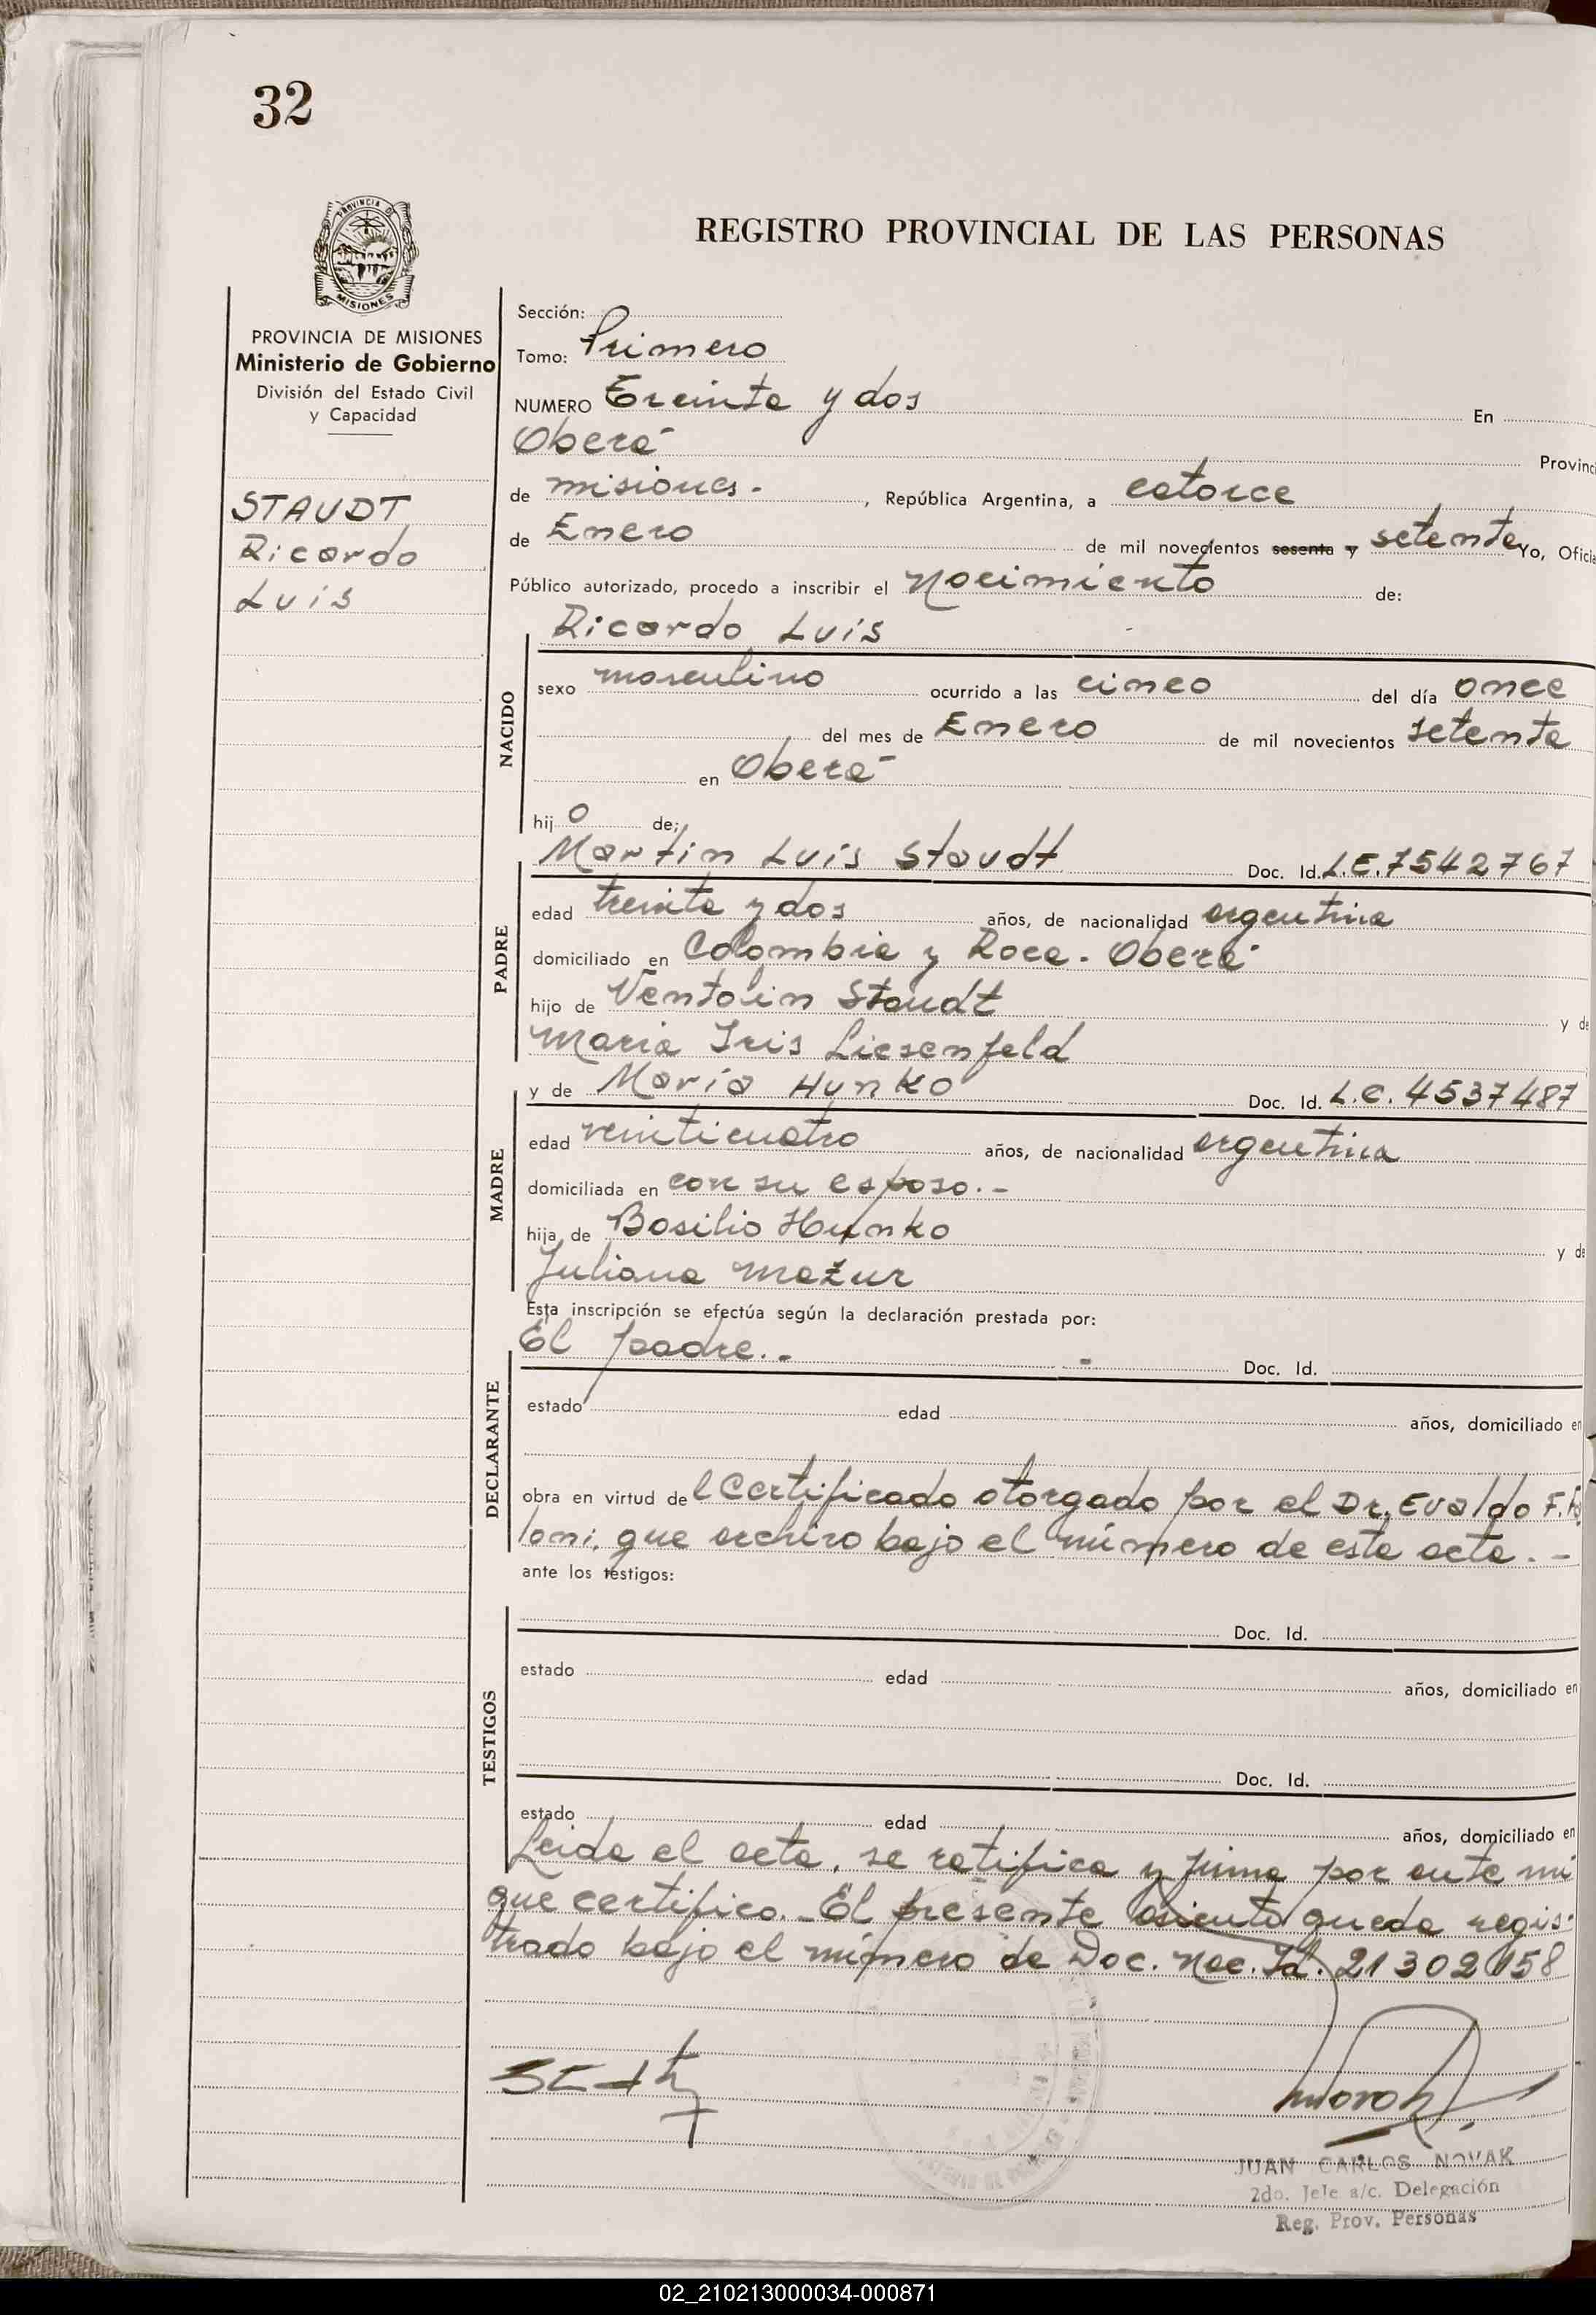 32
PROVINCIA DE
MISIONES
REGISTRO PROVINCIAL DE LAS PERSONAS
PROVINCIA DE MISIONES
Ministerio de Gobierno
División del Estado Civil
y Capacidad
STAUDT
Ricardo
Luis
Sección:
Tomo: Primero
NUMERO Treinta y dos En
Oberá Provinci
de misiones.- , República Argentina, a catorce
de Enero de mil novecientos sesenta y setenta Yo, Oficia
Público autorizado, procedo a inscribir el Nacimiento de:
Ricardo Luis
NACIDO
sexo masculino ocurrido a las cinco del día once
del mes de Enero de mil novecientos setenta
en Oberá
hij o de;
Martin Luis Staudt Doc. Id. L.E. 7542767
PADRE
edad treinta y dos años, de nacionalidad argentina
domiciliado en Colombia y Roca - Oberá
hijo de Ventolin Staudt y de
Maria Iris Liesenfeld
y de Maria Hunko Doc. Id. L.C. 4537487
MADRE
edad veinticuatro años, de nacionalidad argentina
domiciliada en con su esposo.-
hija de Basilio Hunko y de
Juliana Mazur
Esta inscripción se efectúa según la declaración prestada por:
El padre.- - Doc. Id.
DECLARANTE
estado edad años, domiciliado en
obra en virtud de l Certificado otorgado por el Dr. Evaldo F.
loni, que archivo bajo el número de esta acta.-
ante los testigos:
Doc. Id.
TESTIGOS
estado edad años, domiciliado en
Doc. Id.
estado edad años, domiciliado en
Leida el acta, se ratifica y firma por ante mi
que certifico.- El presente asiento queda regis-
trado bajo el número de Doc. Nac. Id. 21302158
JUAN CARLOS NOVAK
2do. Jefe a/c. Delegación
Reg. Prov. Personas
02_210213000034-000871